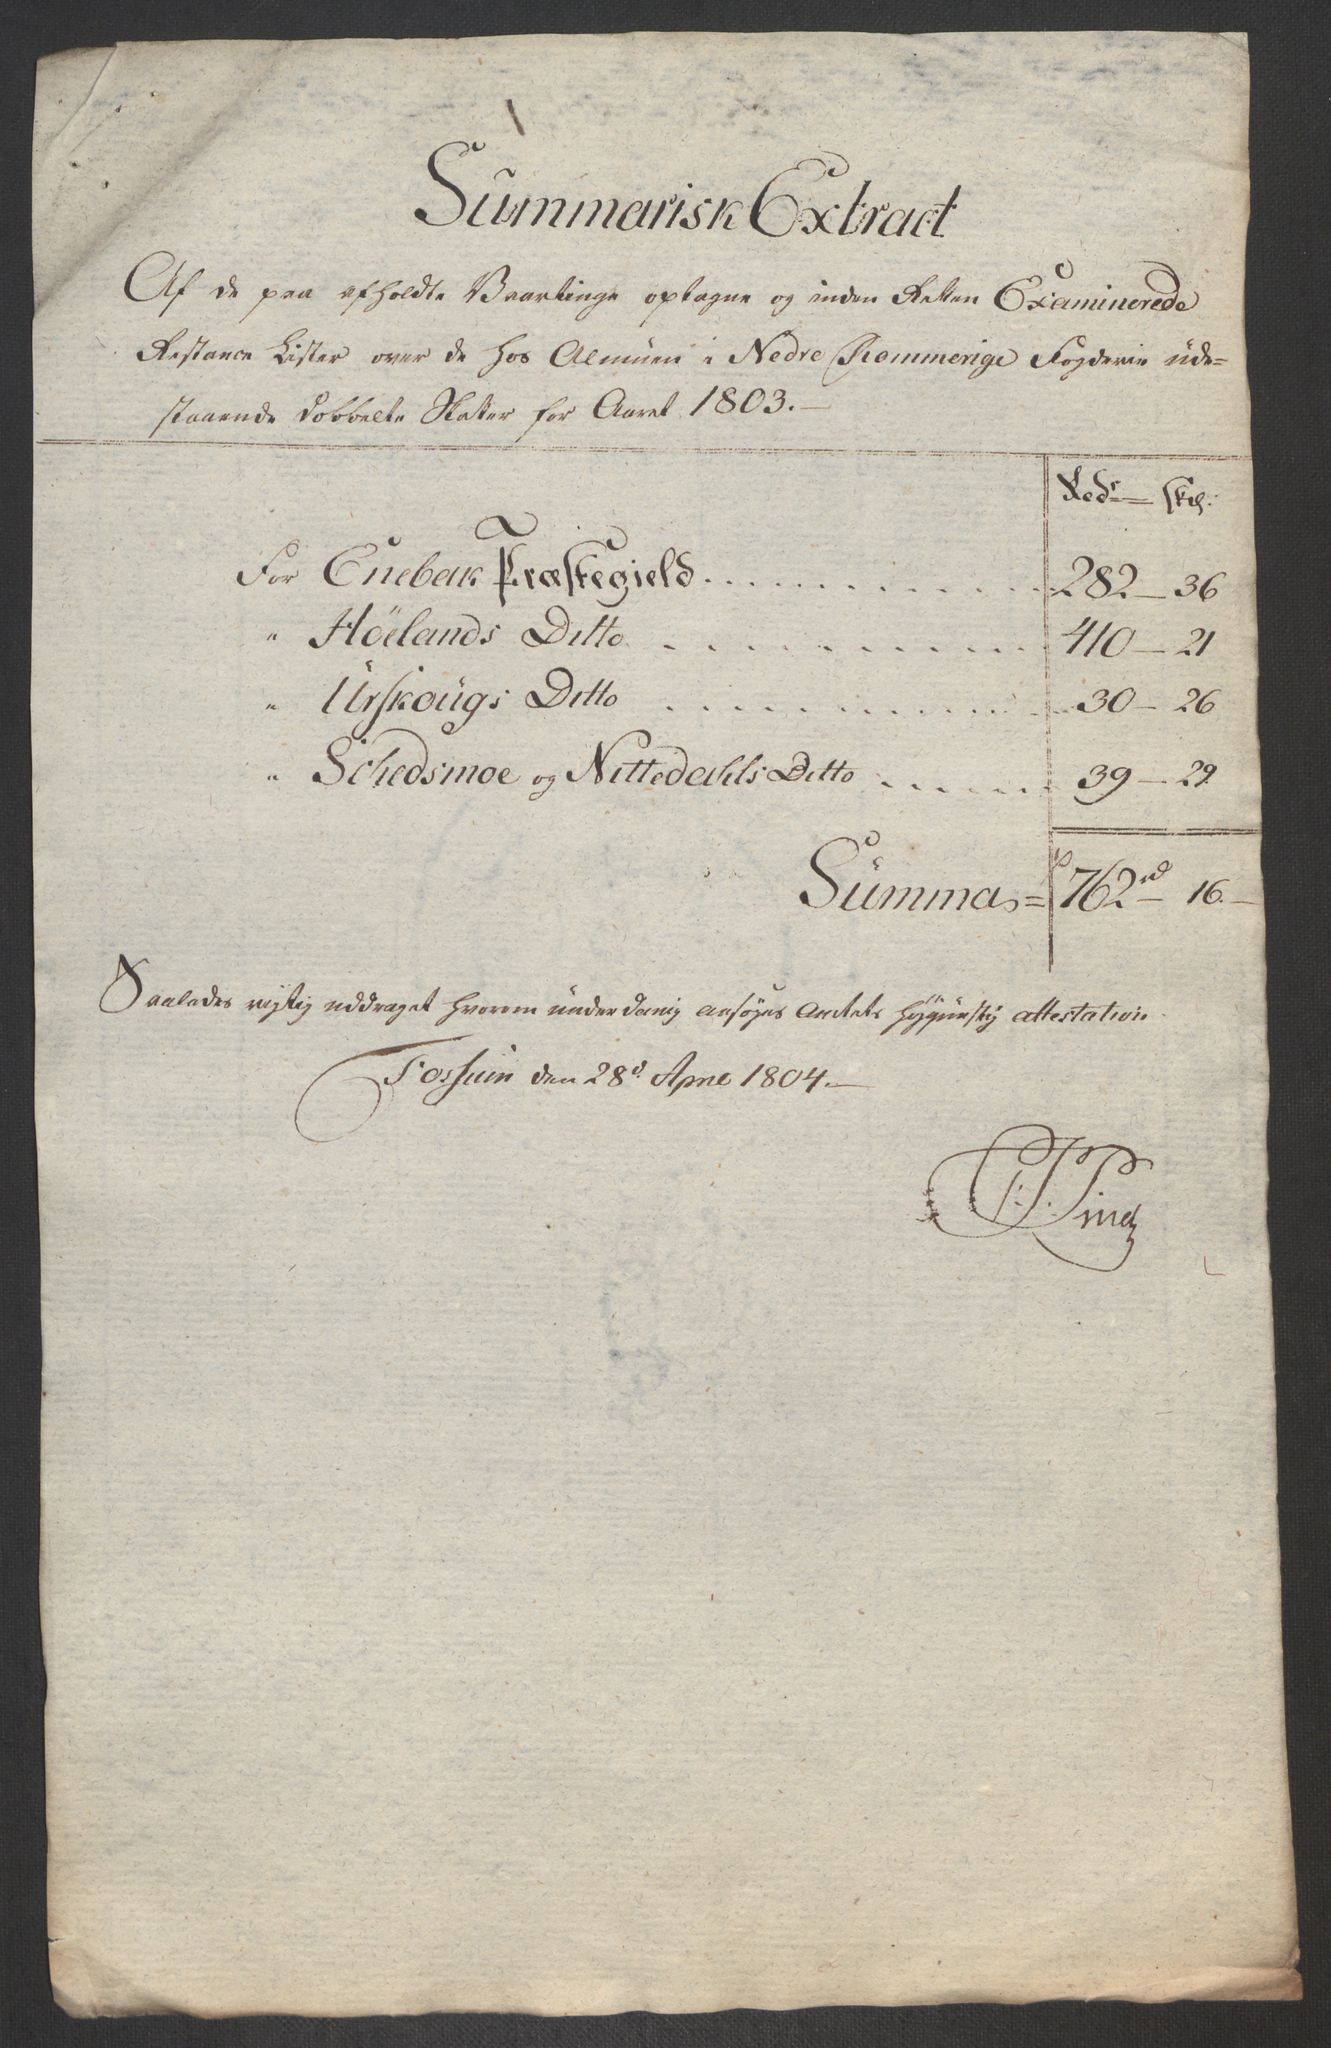 Summarisk Extract
Af de paa afholdte Vaartinge optagne og inden Retten Examinerede
Restance Lister over de hos Almuen i Nedre Rommerige Fogderie ude=
staaende dobbelte Skatter for Aaret 1803.—
Rdr — skl:
For Enebak Præstegield 282 — 36
" Höelands Ditto 410 — 21
" Urskougs Ditto 30 — 26
" Schedsmoe og Nittedahls Ditto 39 — 29
Summa = 762 rd — 16 —
Saaledes rigtig uddraget hvorom underdanig ansøges Amtets høygunstig attestation
Fossum den 28d. April 1804.—